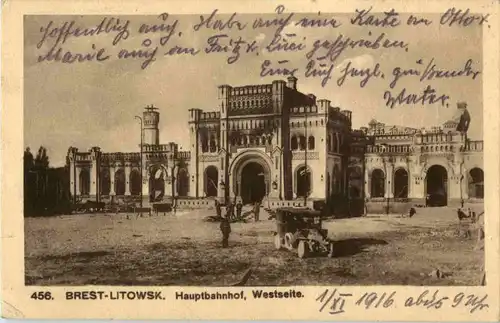 Hoffentlich auch. Habe auch eine Karte an Otto x.
Marie auch an Fritz x. Luci geschrieben.
Euer Euch herzl. grüßender
Walter.
456. BREST-LITOWSK. Hauptbahnhof, Westseite.
1/XI 1916 abds 9 Uhr